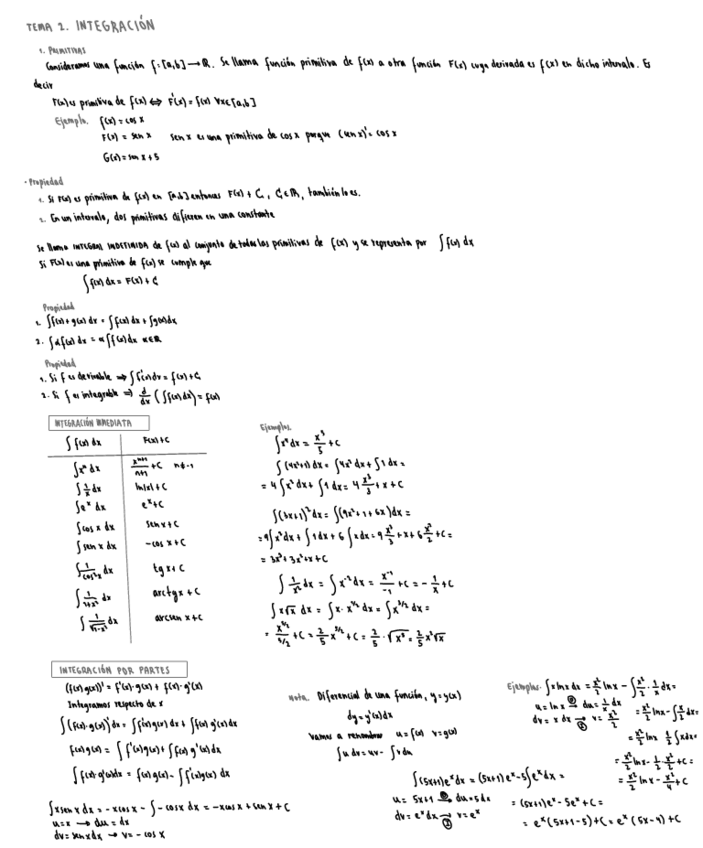 TEMA 2. INTEGRACIÓN
1. PRIMITIVAS
Consideramos una función f:[a,b]→ℝ. Se llama función primitiva de f(x) a otra función F(x) cuya derivada es f(x) en dicho intervalo. Es
decir
F(x) es primitiva de f(x) ⇔ F'(x) = f(x) ∀x∈[a,b]
Ejemplo. f(x) = cos x
F(x) = sen x sen x es una primitiva de cos x porque (sen x)' = cos x
G(x) = sen x + 5
· Propiedad
1. Si F(x) es primitiva de f(x) en [a,b] entonces F(x) + C, C∈ℝ, también lo es.
2. En un intervalo, dos primitivas difieren en una constante
Se llama INTEGRAL INDEFINIDA de f(x) al conjunto de todas las primitivas de f(x) y se representa por ∫f(x) dx
Si F(x) es una primitiva de f(x) se cumple que
∫f(x) dx = F(x) + C
Propiedad
1. ∫f(x) + g(x) dx = ∫f(x) dx + ∫g(x) dx
2. ∫αf(x) dx = α∫f(x) dx α∈ℝ
Propiedad
1. Si f es derivable ⇒ ∫f'(x) dx = f(x) + C
2. Si f es integrable ⇒ d/dx (∫f(x) dx) = f(x)
INTEGRACIÓN INMEDIATA
∫f(x) dx F(x) + C
∫xⁿ dx xⁿ⁺¹/n+1 + C n≠-1
∫1/x dx ln|x| + C
∫eˣ dx eˣ + C
∫cos x dx sen x + C
∫sen x dx -cos x + C
∫1/cos²x dx tg x + C
∫1/1+x² dx arctg x + C
∫1/√1-x² dx arcsen x + C
Ejemplos.
∫x⁴ dx = x⁵/5 + C
∫(4x²+1) dx = ∫4x² dx + ∫1 dx =
= 4∫x² dx + ∫1 dx = 4 x³/3 + x + C
∫(3x+1)² dx = ∫(9x²+1+6x) dx =
= 9∫x² dx + ∫1 dx + 6∫x dx = 9 x³/3 + x + 6 x²/2 + C =
= 3x³ + 3x² + x + C
∫1/x² dx = ∫x⁻² dx = x⁻¹/-1 + C = -1/x + C
∫x√x dx = ∫x·x^1/2 dx = ∫x^3/2 dx =
= x^5/2/5/2 + C = 2/5 x^5/2 + C = 2/5 · √x⁵ = 2/5 x²√x
INTEGRACIÓN POR PARTES
(f(x)·g(x))' = f'(x)·g(x) + f(x)·g'(x)
Integramos respecto de x
∫(f(x)·g(x))' dx = ∫f'(x)g(x) dx + ∫f(x) g'(x) dx
f(x) g(x) = ∫f'(x)g(x) + ∫f(x) g'(x) dx
∫f(x)·g'(x) dx = f(x) g(x) - ∫f'(x)g(x) dx
∫x sen x dx = -x cos x - ∫-cos x dx = -x cos x + sen x + C
u = x → du = dx
dv = sen x dx → v = -cos x
Nota. Diferencial de una función, y = y(x)
dy = y'(x) dx
Vamos a renombrar u = f(x) v = g(x)
∫u dv = uv - ∫v du
∫(5x+1)eˣ dx = (5x+1)eˣ - 5∫eˣ dx =
u = 5x+1 → du = 5dx = (5x+1)eˣ - 5eˣ + C =
dv = eˣ dx → v = eˣ = eˣ(5x+1-5) + C = eˣ(5x-4) + C
Ejemplo. ∫x ln x dx = x²/2 ln x - ∫x²/2 · 1/x dx =
u = ln x → du = 1/x dx = x²/2 ln x - ∫x/2 dx =
dv = x dx → v = x²/2
= x²/2 ln x - 1/2 ∫x dx =
= x²/2 ln x - 1/2 x²/2 + C =
= x²/2 ln x - x²/4 + C